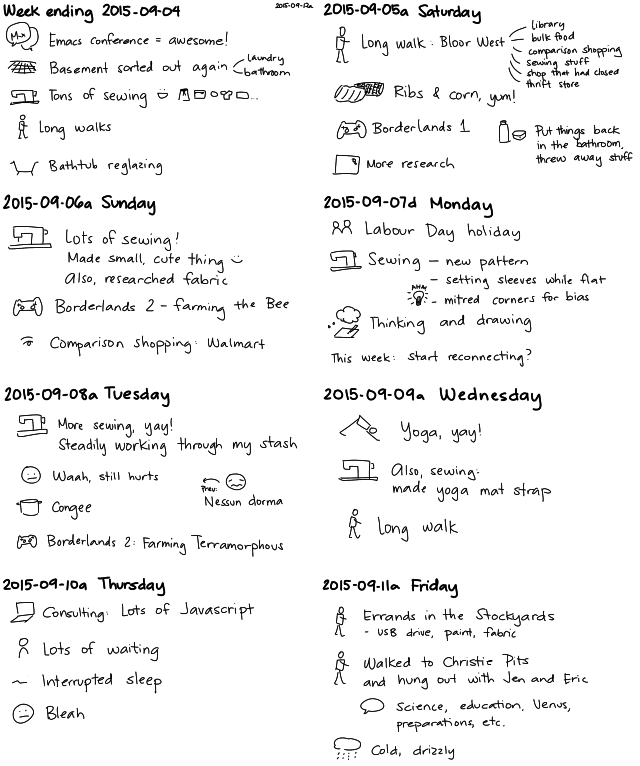 Week ending 2015-09-04
2015-09-12a
M-x
Emacs conference = awesome!
Basement sorted out again
laundry
bathroom
Tons of sewing ...
Long walks
Bathtub reglazing
2015-09-05a Saturday
Long walk: Bloor West
library
bulk food
comparison shopping
sewing stuff
shop that had closed
thrift store
Ribs & corn, yum!
Borderlands 1
Put things back
in the bathroom,
threw away stuff
More research
2015-09-06a Sunday
Lots of sewing!
Made small, cute thing
Also, researched fabric
Borderlands 2 - farming the Bee
Comparison shopping: Walmart
2015-09-07d Monday
Labour Day holiday
Sewing - new pattern
- setting sleeves while flat
AHA!
- mitred corners for bias
Thinking and drawing
This week: start reconnecting?
2015-09-08a Tuesday
More sewing, yay!
Steadily working through my stash
Waah, still hurts
Prev:
Nessun dorma
Congee
Borderlands 2: Farming Terramorphous
2015-09-09a Wednesday
Yoga, yay!
Also, sewing:
made yoga mat strap
Long walk
2015-09-10a Thursday
Consulting: Lots of Javascript
Lots of waiting
~ Interrupted sleep
Bleah
2015-09-11a Friday
Errands in the Stockyards
- USB drive, paint, fabric
Walked to Christie Pits
and hung out with Jen and Eric
Science, education, Venus,
preparations, etc.
Cold, drizzly